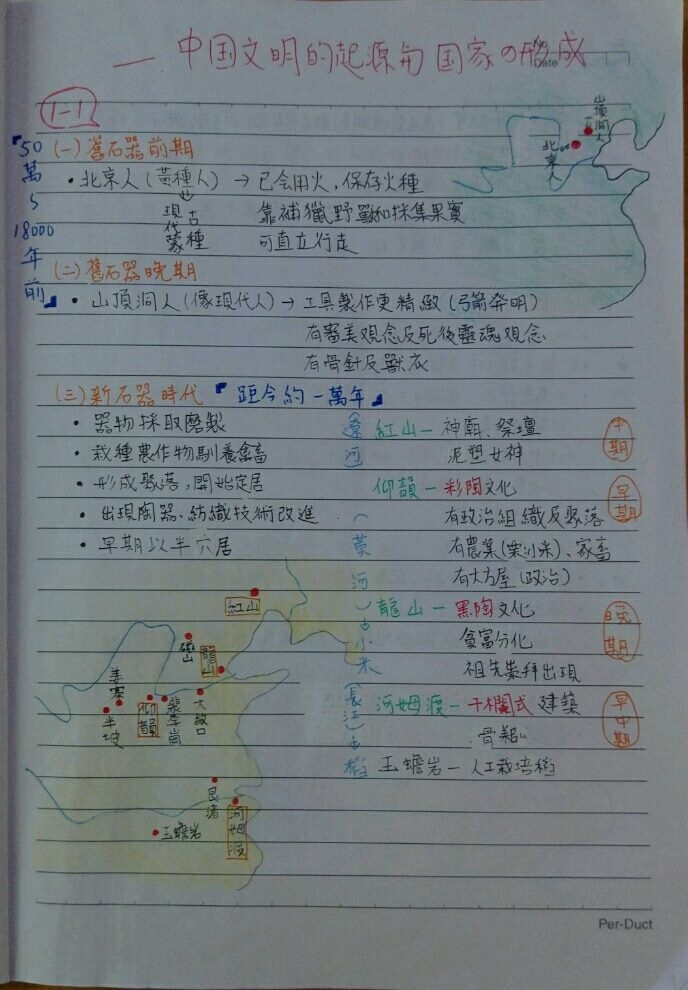 一 中国文明的起源与国家の形成
Date
1-1
山頂洞人
北京人
『50萬~18000年前』
(一)舊石器前期
·北京人(黃種人)→已会用火,保存火種
現代蒙古種
靠補獵野獸和採集果實
可直立行走
(二)舊石器晚期
·山頂洞人(像現代人)→工具製作更精緻(弓箭発明)
有審美观念及死後靈魂观念
有骨針及獸衣
(三)新石器時代『距今約一萬年』
·器物採取磨製
·栽種農作物馴養禽畜
·形成聚落,開始定居
·出現陶器、紡織技術改進
·早期以半穴居
遼河
紅山—神廟、祭壇
泥塑女神
中期
(黃河)
仰韻—彩陶文化
早期
有政治組織及聚落
有農業(粟小米)、家畜
有大方屋(政治)
龍山—黑陶文化
晚期
貧富分化
祖先崇拜出現
小米
(長江)
河姆渡—干欄式建築
早中期
骨耜
稻
玉蟾岩—人工栽培稻
紅山
磁山
龍山
姜寨
半坡
仰韻
裴李崗
大汶口
良渚
河姆渡
玉蟾岩
Per-Duct